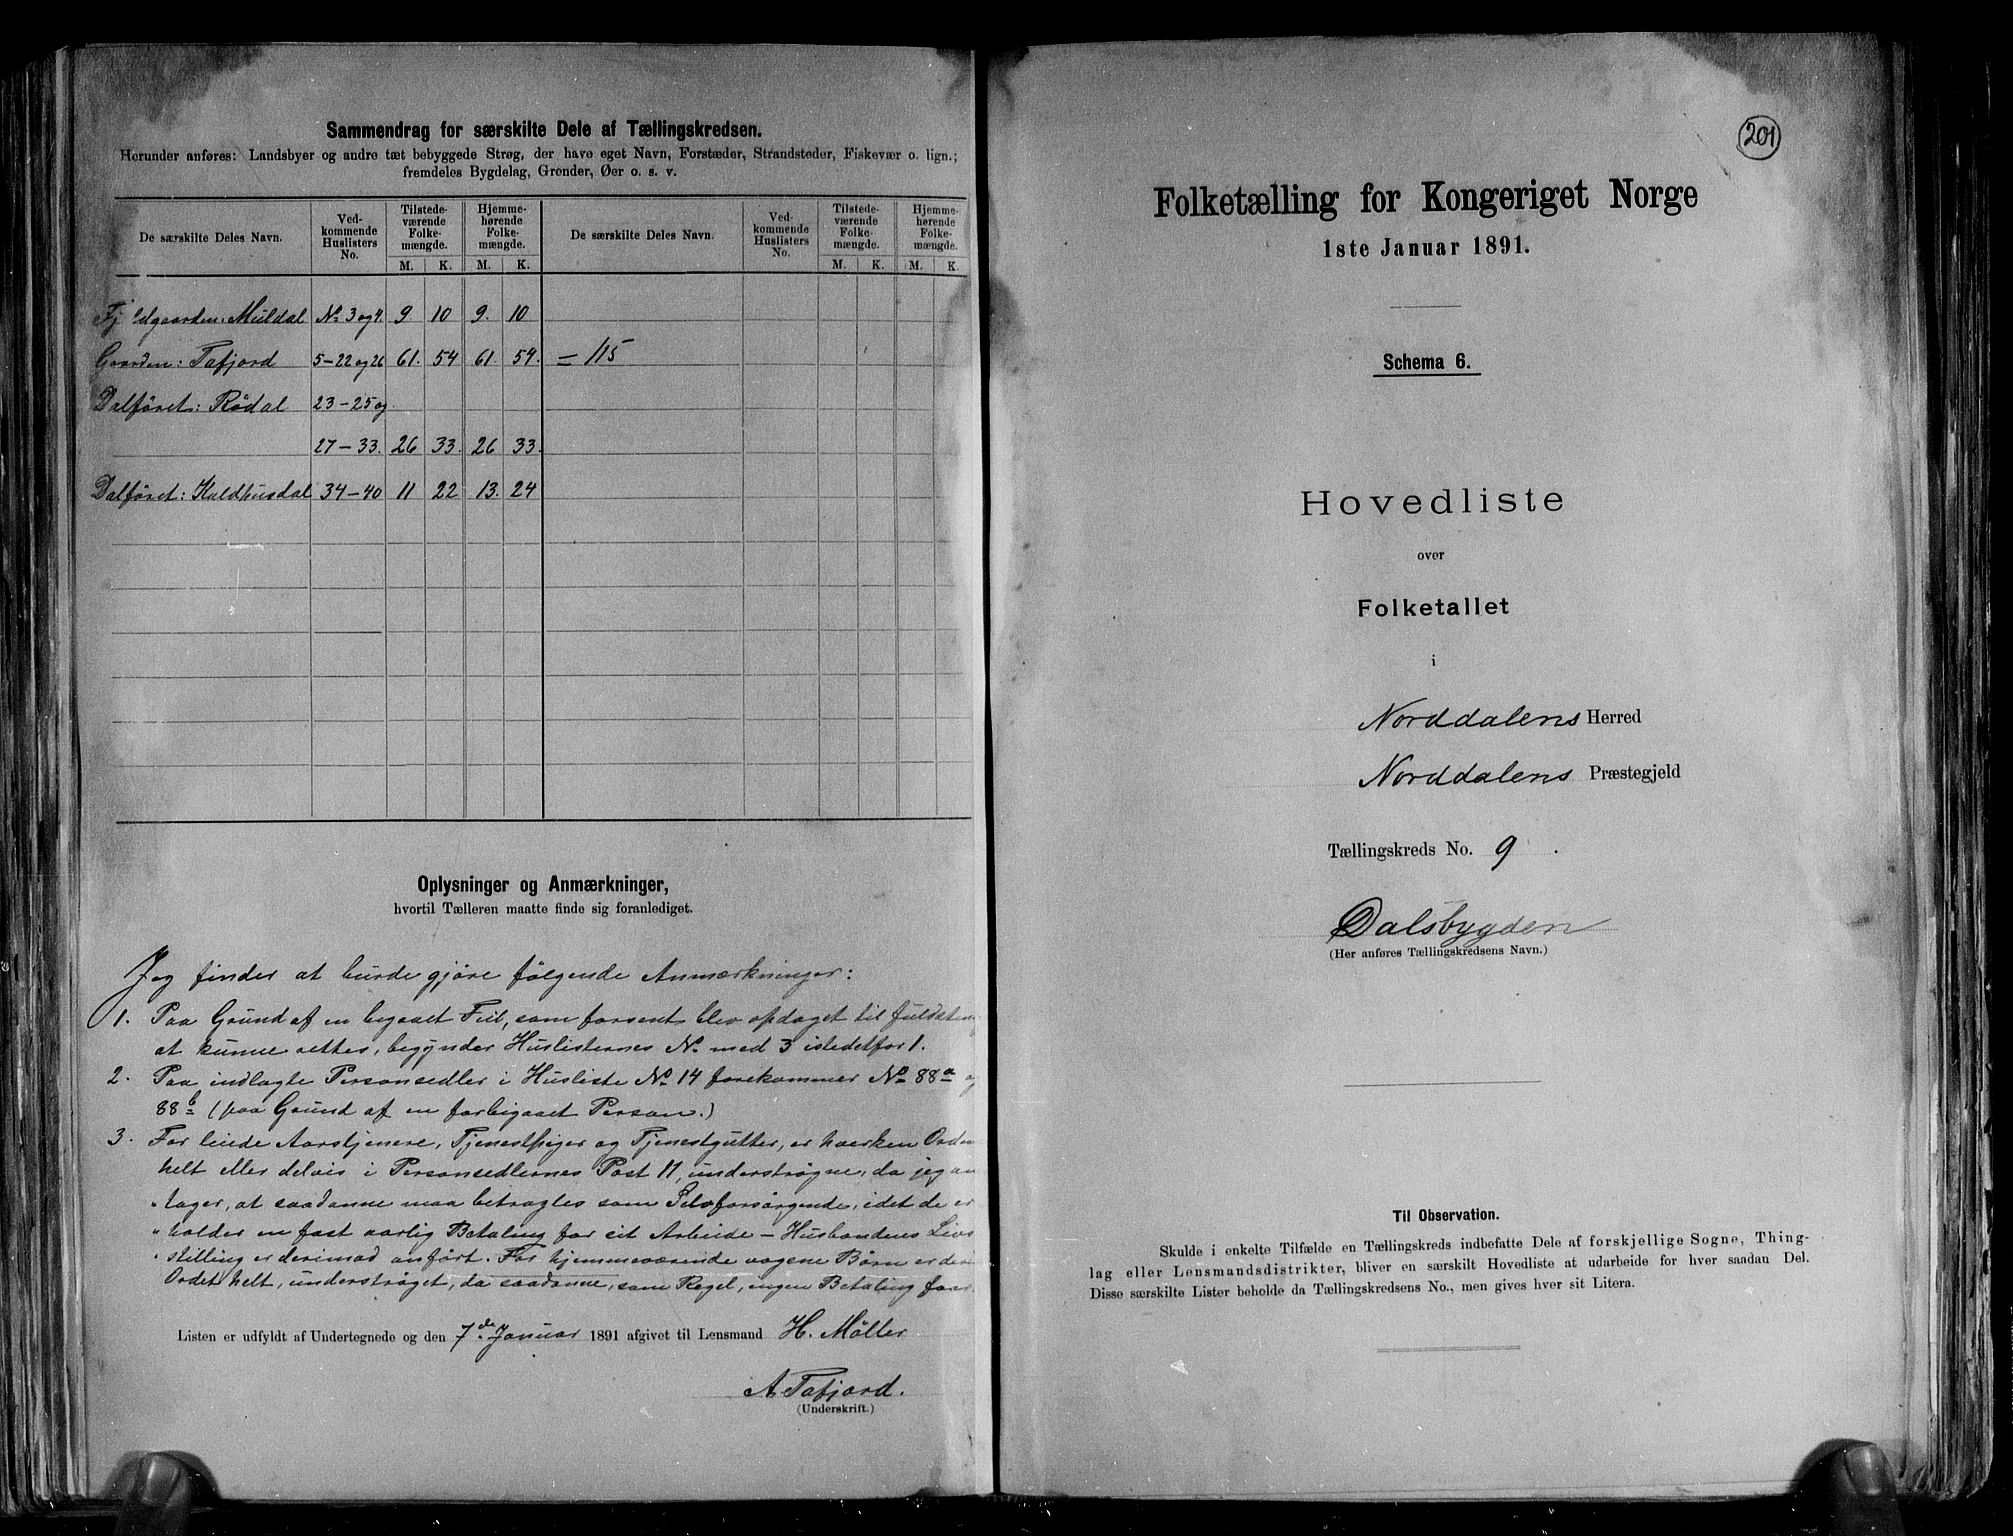 Sammendrag for særskilte Dele af Tællingskredsen.
Herunder anføres: Landsbyer og andre tæt bebyggede Strøg, der have eget Navn, Forstæder, Strandsteder, Fiskevær o. lign.;
fremdeles Bygdelag, Grender, Øer o. s. v.
De særskilte Deles Navn. Ved-kommende Huslisters No. Tilstede-værende Folke-mængde. Hjemme-hørende Folke-mængde. De særskilte Deles Navn. Ved-kommende Huslisters No. Tilstede-værende Folke-mængde. Hjemme-hørende Folke-mængde.
M. K. M. K. M. K. M. K.
Fjeldgaarden: Muldal No 3 og 4. 9 10 9. 10
Gaarden: Tafjord 5-22 og 26 61. 54 61. 54. = 115
Dalføret: Rødal 23-25 og
27-33. 26 33. 26 33.
Dalføret: Kaldhusdal 34-40 11 22 13. 24
Oplysninger og Anmærkninger,
hvortil Tælleren maatte finde sig foranlediget.
Jeg finder at burde gjøre følgende Anmærkninger:
1. Paa Grund af en begaaet Feil, som forsent blev opdaget til fuldstæn
at kunne rettes, begynder Huslisternes No med 3 istedetfor 1.
2. Paa indlagte Personsedler i Husliste No 14 forekommer No 88a og
88b (paa Grund af en forbigaaet Person.)
3. For leiede Aarstjenere, Tjenestpiger og Tjenestgutter, er hverken Orden
helt eller delvis i Personsedlernes Post 11, understrøgne, da jeg an
" tager, at saadanne maa betragtes som Selvforsørgende, idet de er
" holder en fast aarlig Betaling for sit Arbeide - Husbondens Livs
" stilling er derimod anført. For hjemmeværende voxne Børn er der
Ordet helt, understrøget, da saadanne, som Regel, ingen Betaling faar.
Listen er udfyldt af Undertegnede og den 7de Januar 1891 afgivet til Lensmand H. Möller
A. Tafjord.
(Underskrift.)
201
Folketælling for Kongeriget Norge
1ste Januar 1891.
Schema 6.
Hovedliste
over
Folketallet
i
Norddalens Herred
Norddalens Præstegjeld
Tællingskreds No. 9.
Dalsbygden
(Her anføres Tællingskredsens Navn.)
Til Observation.
Skulde i enkelte Tilfælde en Tællingskreds indbefatte Dele af forskjellige Sogne, Thing-
lag eller Lensmandsdistrikter, bliver en særskilt Hovedliste at udarbeide for hver saadan Del.
Disse særskilte Lister beholde da Tællingskredsens No., men gives hver sit Litera.